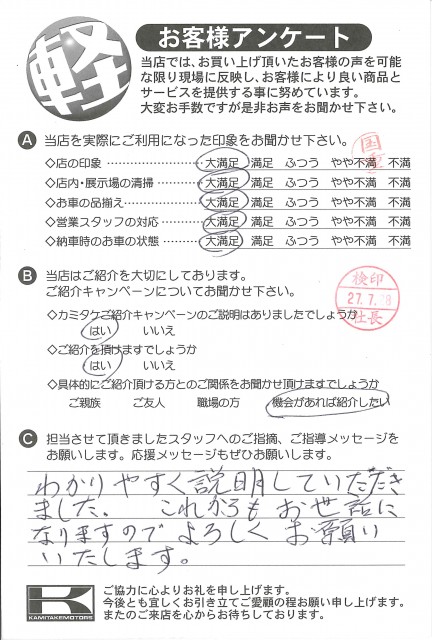 軽
お客様アンケート
当店では、お買い上げ頂いたお客様の声を可能
な限り現場に反映し、お客様により良い商品と
サービスを提供する事に努めています。
大変お手数ですが是非お声をお聞かせ下さい。
A 当店を実際にご利用になった印象をお聞かせ下さい。
◇店の印象 ………………… 大満足 満足 ふつう やや不満 不満
◇店内・展示場の清掃 ……… 大満足 満足 ふつう やや不満 不満
◇お車の品揃え ……………… 大満足 満足 ふつう やや不満 不満
◇営業スタッフの対応 ……… 大満足 満足 ふつう やや不満 不満
◇納車時のお車の状態 ……… 大満足 満足 ふつう やや不満 不満
B 当店はご紹介を大切にしてあります。
ご紹介キャンペーンについてお聞かせ下さい。
検印
27.7.
社長
◇カミタケご紹介キャンペーンのご説明はありましたでしょうか
はい いいえ
◇ご紹介を頂けますでしょうか
はい いいえ
◇具体的にご紹介頂ける方とのご関係をお聞かせ頂けますでしょうか
ご親族 ご友人 職場の方 機会があれば紹介したい
C 担当させて頂きましたスタッフへのご指摘、ご指導メッセージを
お願いします。応援メッセージもぜひお願いします。
わかりやすく説明していただき
ました。 これからもお世話に
なりますのでよろしくお願い
いたします。
KAMITAKEMOTORS
ご協力に心よりお礼を申し上げます。
今後とも宜しくお引き立てご愛顧の程お願い申し上げます。
またのご来店を心からお待ちしております。